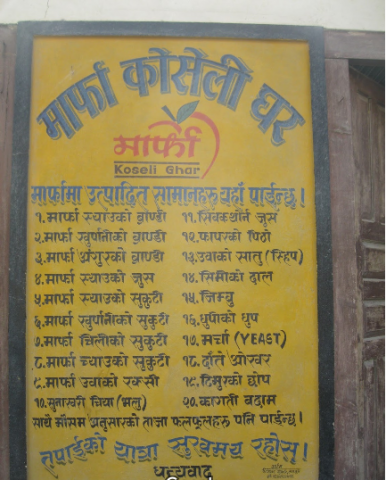 मार्फा कोसेली घर
मार्फा
Koseli Ghar
मार्फामा उत्पादित सामानहरु यहाँ पाईन्छ।
१. मार्फा स्याउको ब्राण्डी
२. मार्फा खुर्पानीको ब्राण्डी
३. मार्फा अँगुरको ब्राण्डी
४. मार्फा स्याउको जुस
५. मार्फा स्याउको सुकुटी
६. मार्फा खुर्पानीको सुकुटी
७. मार्फा चिलीको सुकुटी
८. मार्फा च्याउको सुकुटी
९. मार्फा उवाको रक्सी
१०. सुनाखरी चिया (मलु)
११. सिबकथोर्न जुस
१२. फापरको पिठो
१३. उवाको सातु (स्हिप)
१४. सिमीको दाल
१५. जिम्बु
१६. धुपीको धुप
१७. मर्चा (YEAST)
१८. दाँते ओखर
१९. टिमुरको छोप
२०. कागती बदाम
साथै मौसम अनुसारको ताजा फलफूलहरु पनि पाईन्छ।
तपाईको यात्रा सुखमय रहोस्।
धन्यवाद